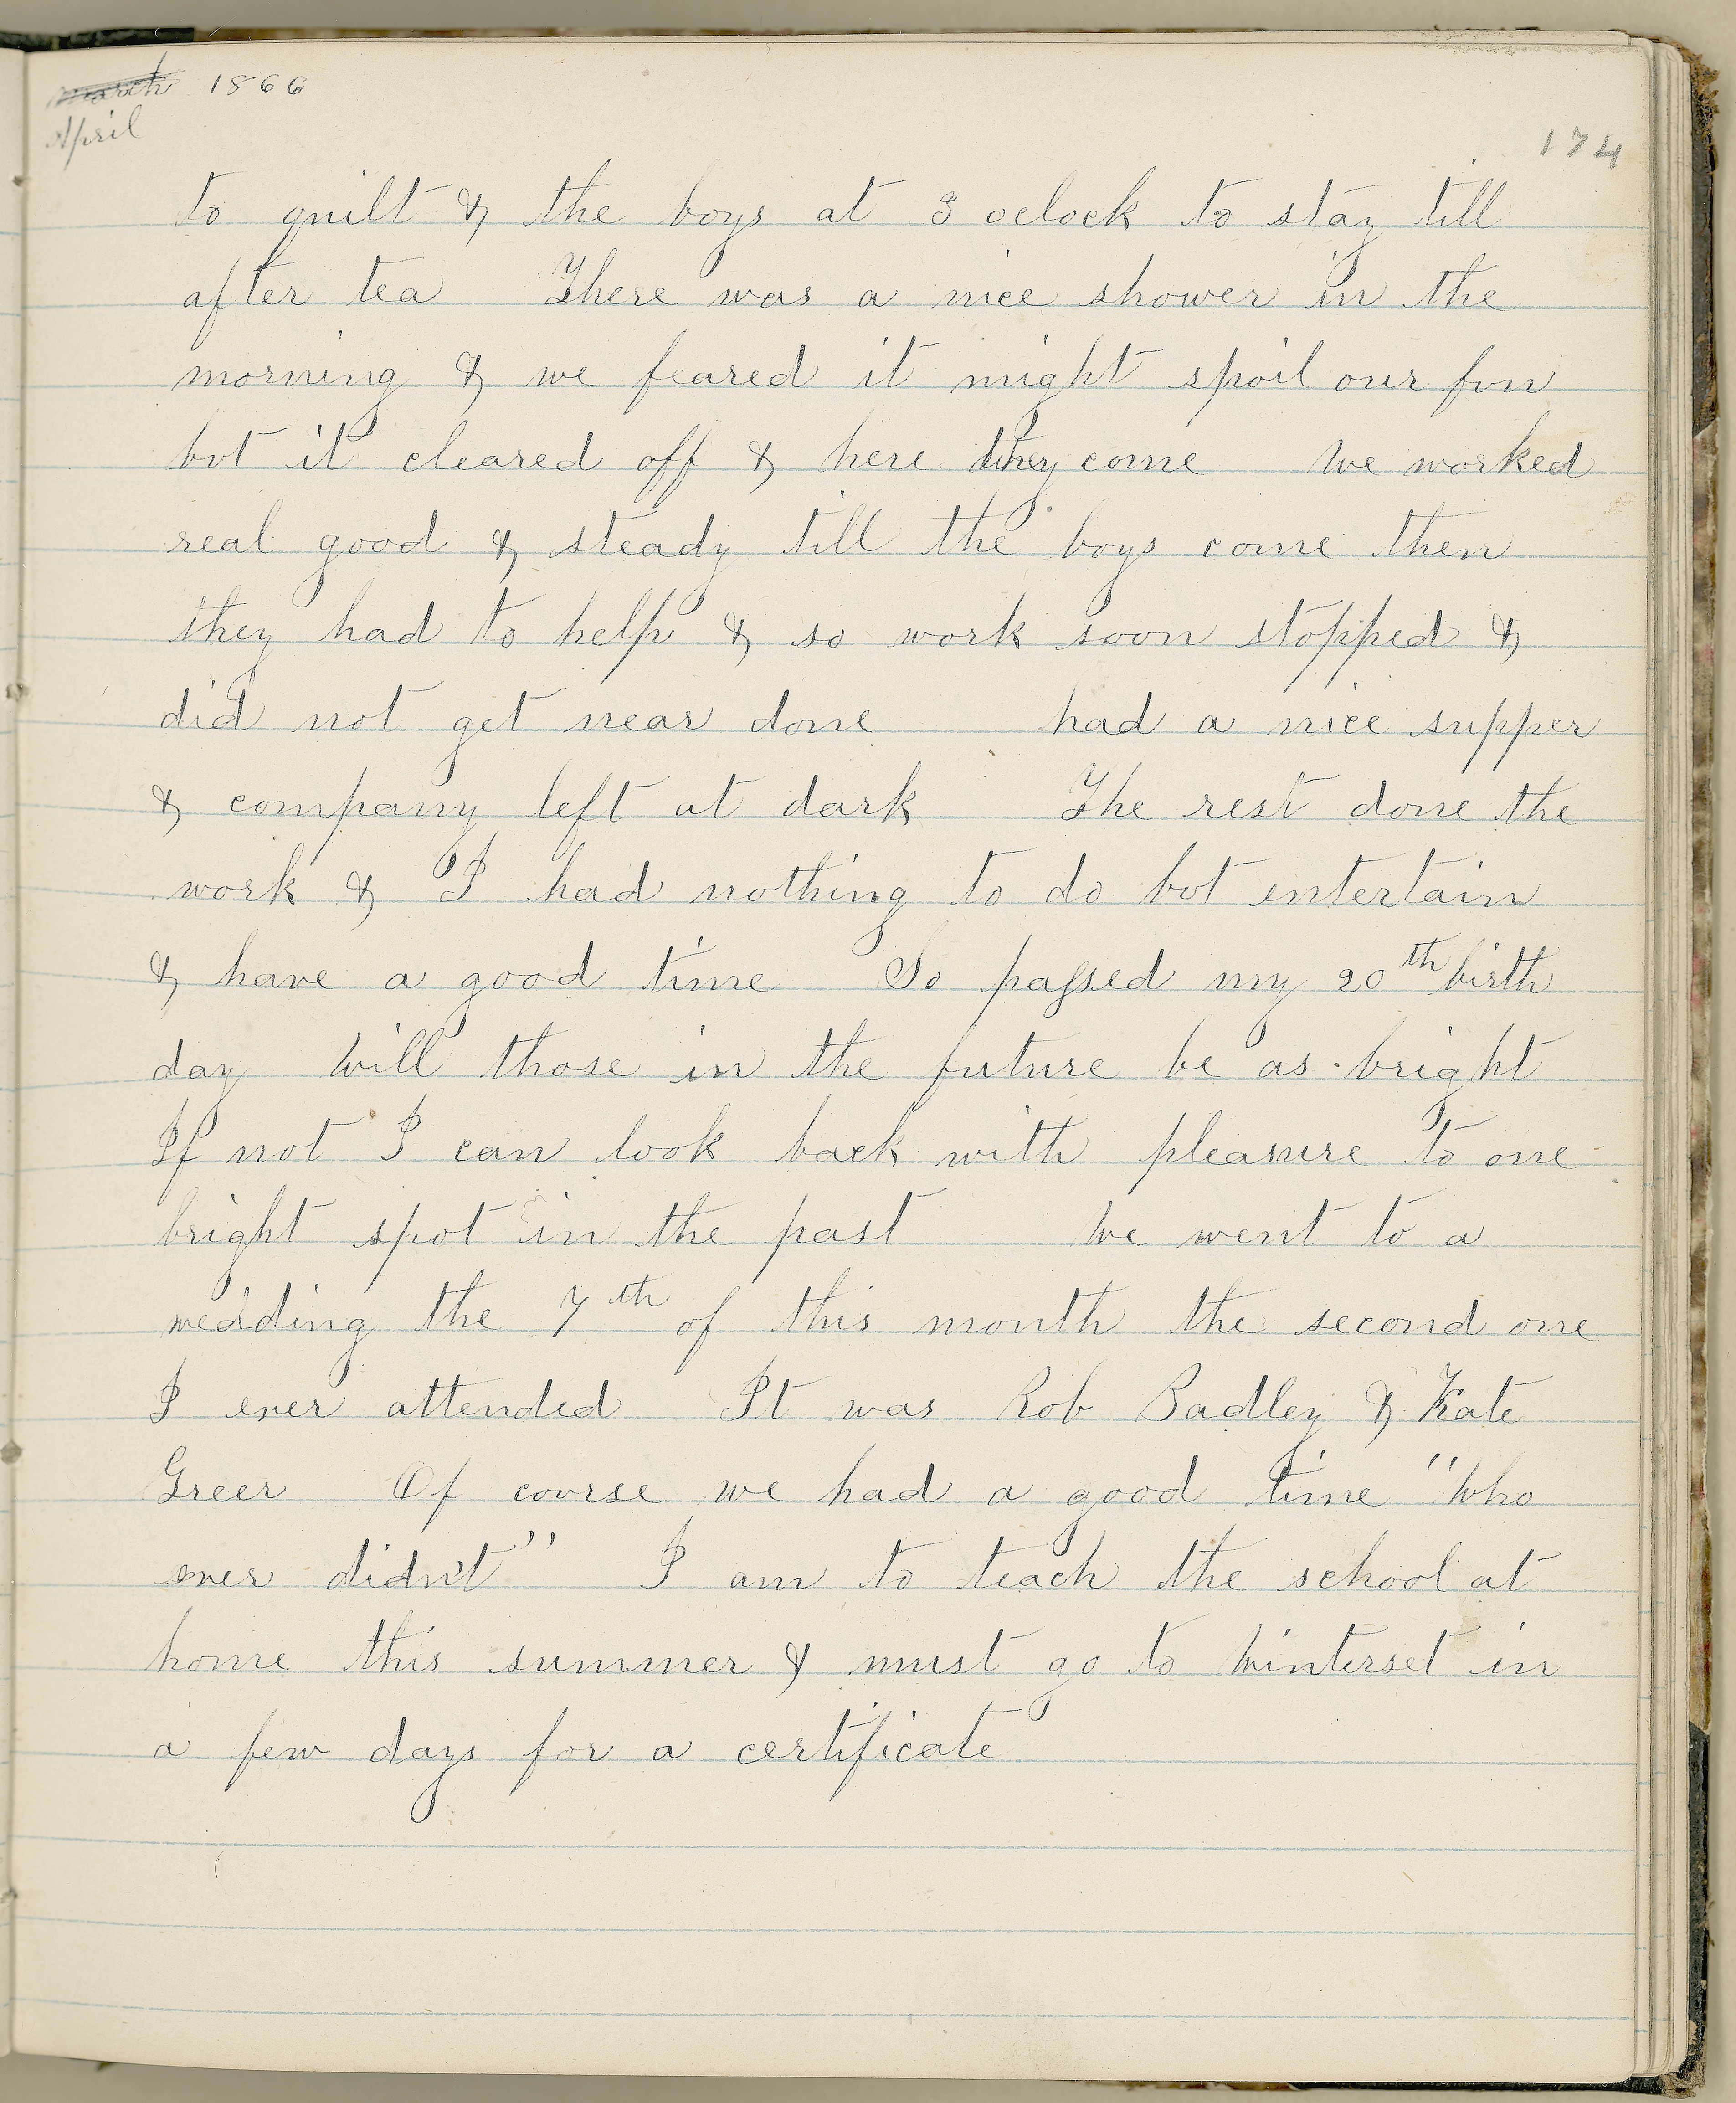 March 1866
April
174
to quilt & the boys at 3 oclock to stay till
after tea There was a nice shower in the
morning & we feared it might spoil our fun
but it cleared off & here they come We worked
real good & steady till the boys come then
they had to help & so work soon stopped &
did not get near done had a nice supper
& company left at dark The rest done the
work & I had nothing to do but entertain
& have a good time So passed my 20th birth
day Will those in the future be as bright
If not I can look back with pleasure to one
bright spot in the past We went to a
wedding the 7th of this month the second one
I ever attended It was Rob Badley & Kate
Greer Of course we had a good time "Who
ever didn't" I am to teach the school at
home this summer & must go to Winterset in
a few days for a certificate